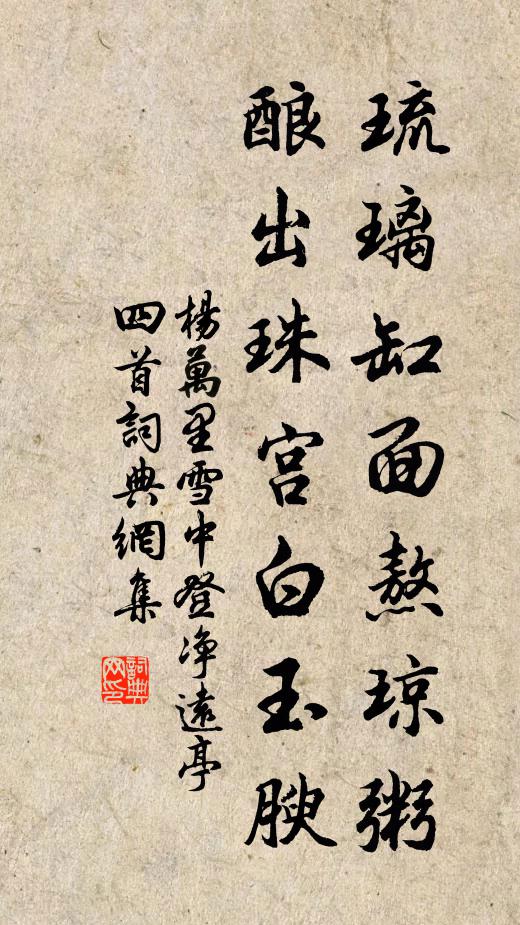 琉璃缸面熬琼粥
酿出珠宫白玉腴
楊萬里雪中登净遠亭
四首詞典網集
詞典
网印